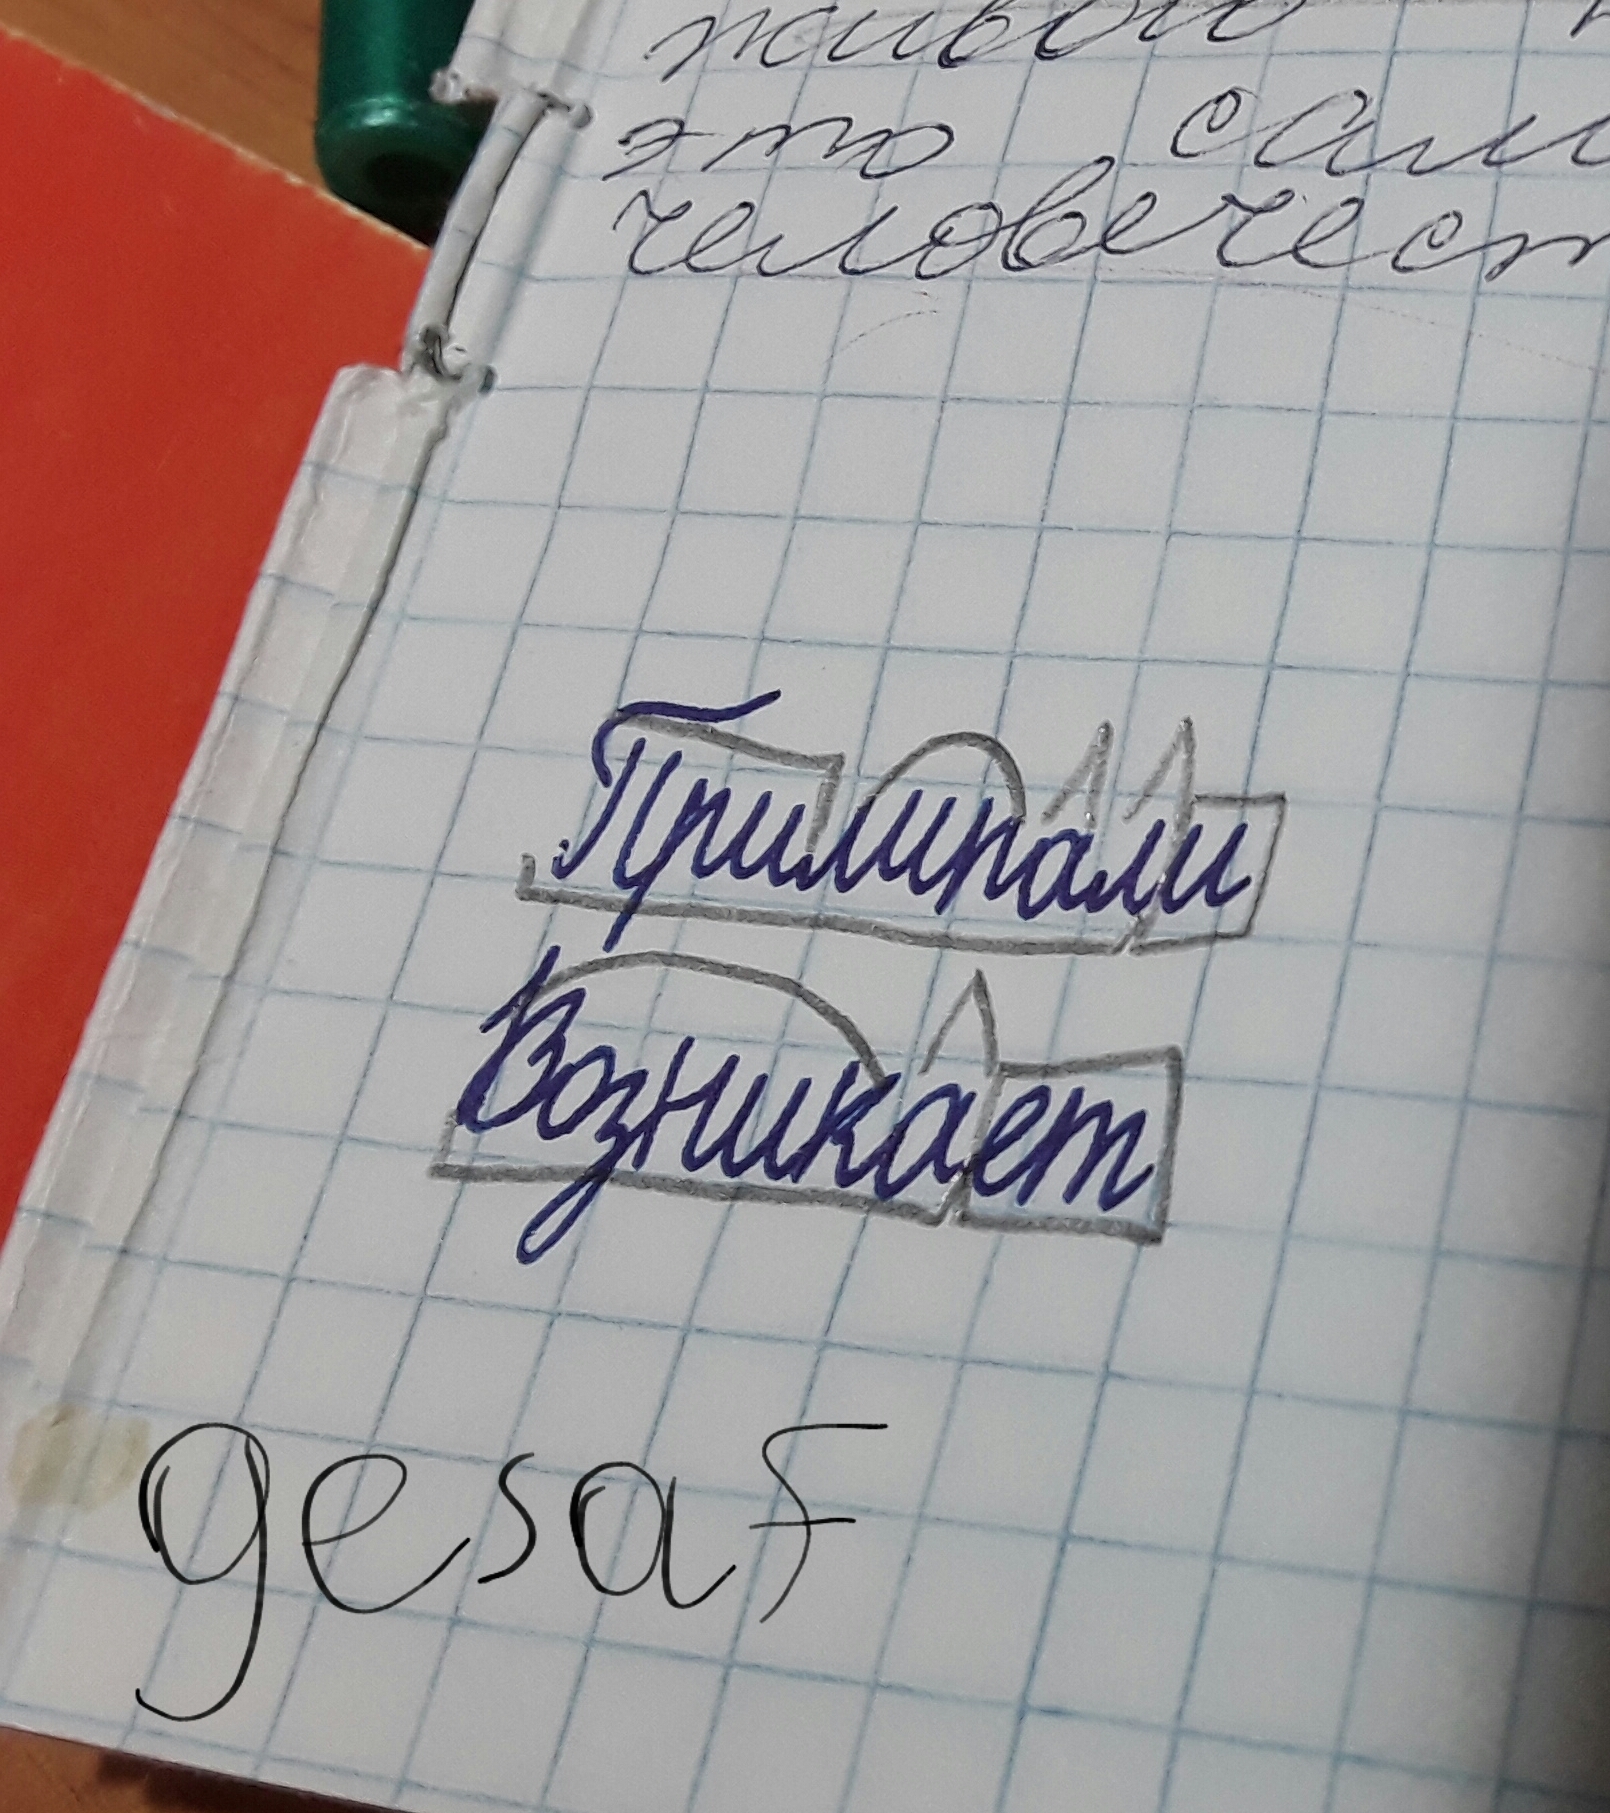 живого
это сам
человечест
Примирали
Возникает
gesaf